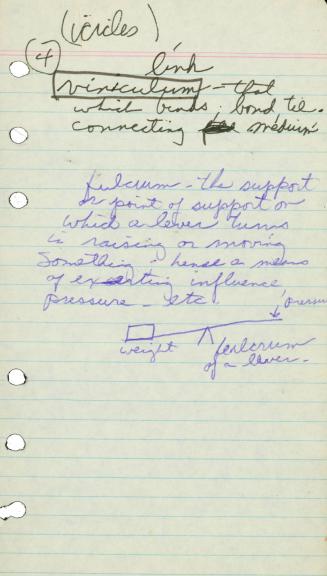 (icicles)
4
link
vinsculum - that
which binds; bond tie.
connecting medium
fulcrum - the support
or point of support on
which a lever turns
in raising or moving
something - hense a means
of exerting influence,
pressure - etc.
pressure
weight
fulcrum
of a lever.